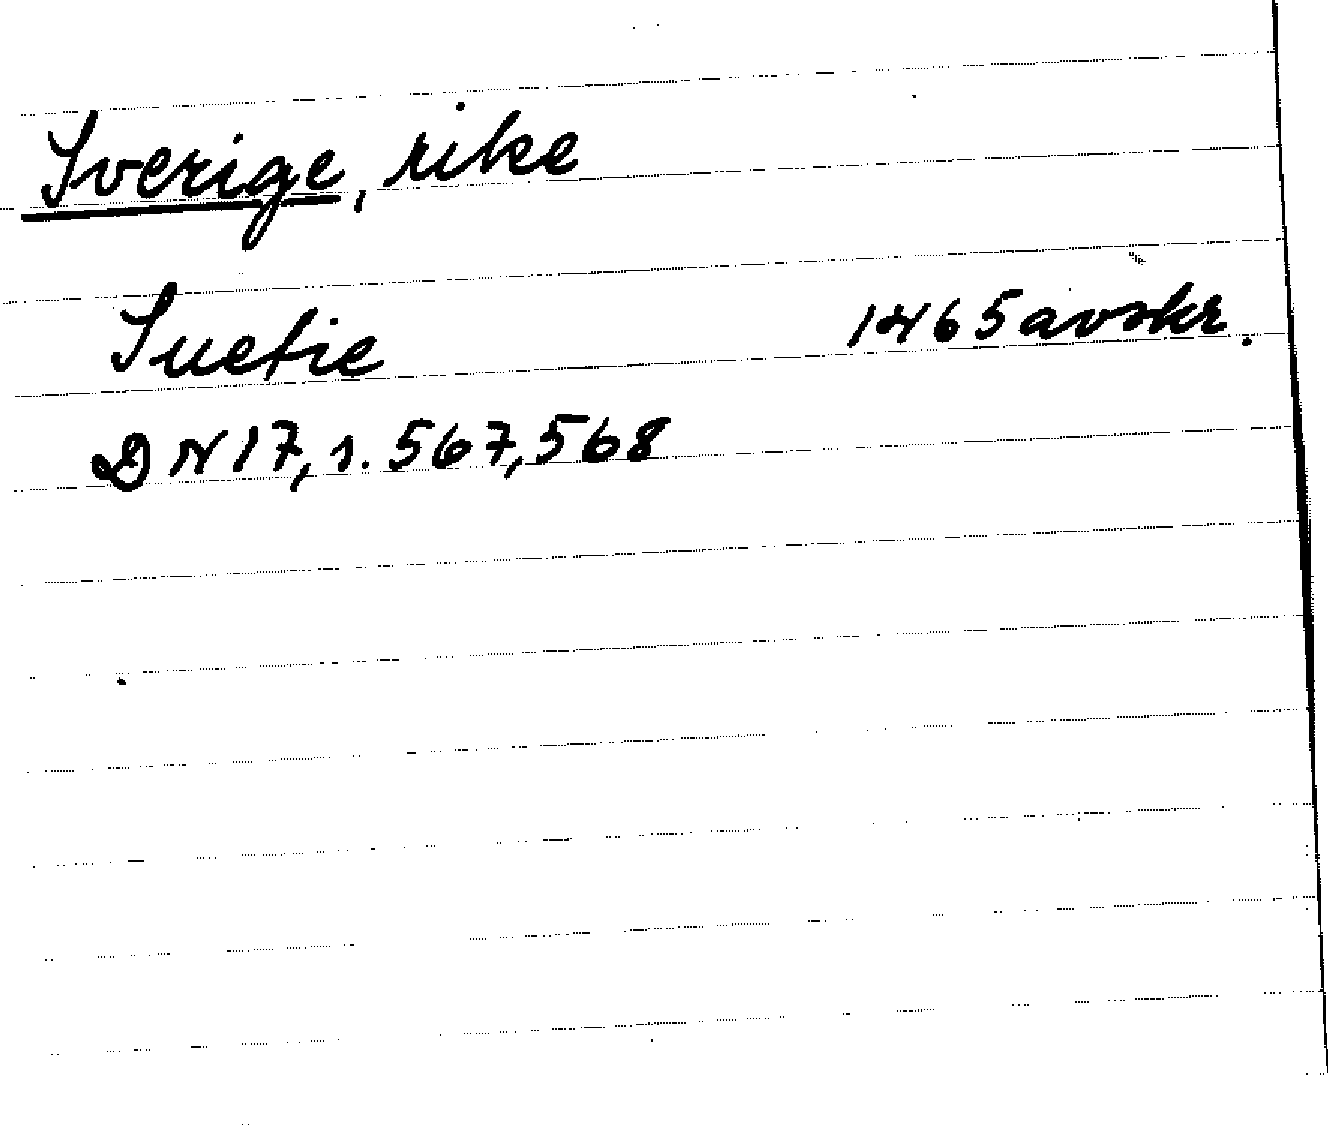 Sverige, rike
Suetie 1465 avskr.
DN 17, s. 567, 568